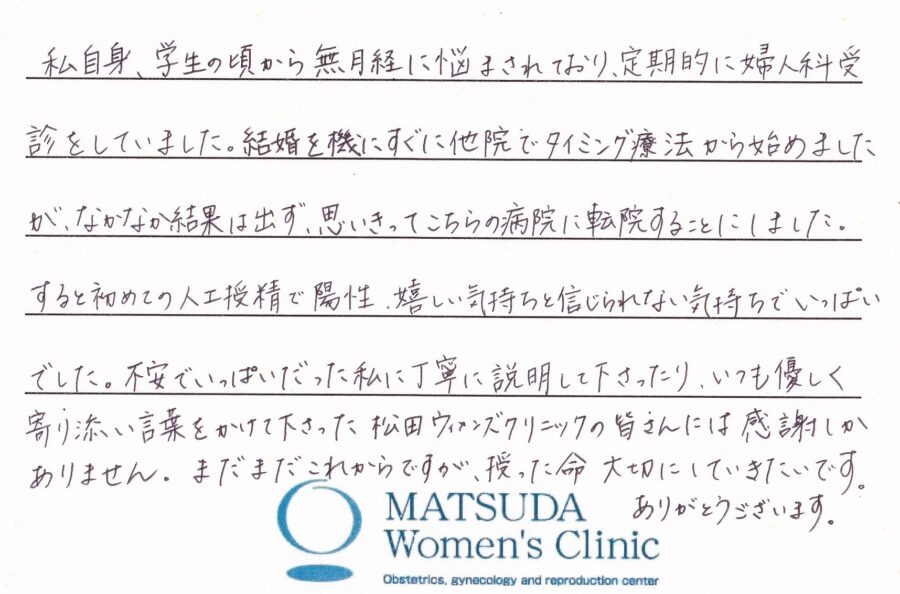 私自身、学生の頃から無月経に悩まされており、定期的に婦人科受
診をしていました。結婚を機にすぐに他院でタイミング療法から始めました
が、なかなか結果は出ず、思いきってこちらの病院に転院することにしました。
すると初めての人工授精で陽性、嬉しい気持ちと信じられない気持ちでいっぱい
でした。不安でいっぱいだった私に丁寧に説明して下さったり、いつも優しく
寄り添い言葉をかけて下さった松田ウィメンズクリニックの皆さんには感謝しか
ありません。まだまだこれからですが、授った命 大切にしていきたいです。
ありがとうございます。
MATSUDA
Women's Clinic
Obstetrics, gynecology and reproduction center